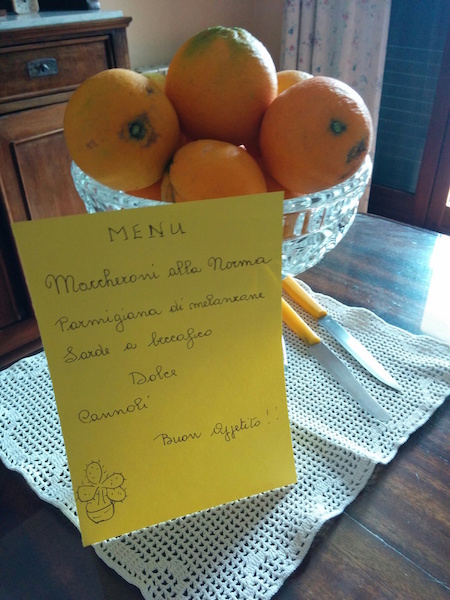 MENU
Maccheroni alla Norma
Parmigiana di melanzane
Sarde a beccafico
Dolce
Cannoli
Buon Appetito!!